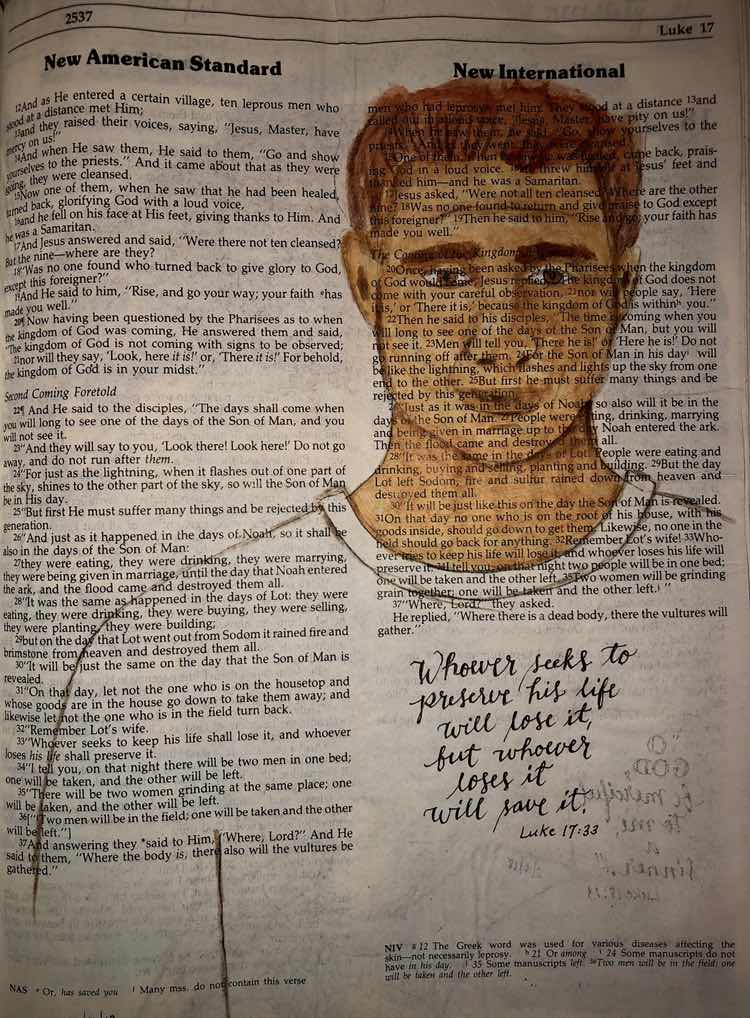 2537
Luke 17
New American Standard
12And as He entered a certain village, ten leprous men who
stood at a distance met Him;
13and they raised their voices, saying, "Jesus, Master, have
mercy on us!"
14And when He saw them, He said to them, "Go and show
yourselves to the priests." And it came about that as they were
going, they were cleansed.
15Now one of them, when he saw that he had been healed,
turned back, glorifying God with a loud voice,
16and he fell on his face at His feet, giving thanks to Him. And
he was a Samaritan.
17And Jesus answered and said, "Were there not ten cleansed?
But the nine—where are they?
18"Was no one found who turned back to give glory to God,
except this foreigner?"
19And He said to him, "Rise, and go your way; your faith *has
made you well."
20¶ Now having been questioned by the Pharisees as to when
the kingdom of God was coming, He answered them and said,
"The kingdom of God is not coming with signs to be observed;
21nor will they say, 'Look, here it is!' or, 'There it is!' For behold,
the kingdom of God is in your midst."
Second Coming Foretold
22¶ And He said to the disciples, "The days shall come when
you will long to see one of the days of the Son of Man, and you
will not see it.
23"And they will say to you, 'Look there! Look here!' Do not go
away, and do not run after them.
24"For just as the lightning, when it flashes out of one part of
the sky, shines to the other part of the sky, so will the Son of Man
be in His day.
25"But first He must suffer many things and be rejected by this
generation.
26"And just as it happened in the days of Noah, so it shall be
also in the days of the Son of Man:
27they were eating, they were drinking, they were marrying,
they were being given in marriage, until the day that Noah entered
the ark, and the flood came and destroyed them all.
28"It was the same as happened in the days of Lot: they were
eating, they were drinking, they were buying, they were selling,
they were planting, they were building;
29but on the day that Lot went out from Sodom it rained fire and
brimstone from heaven and destroyed them all.
30"It will be just the same on the day that the Son of Man is
revealed.
31"On that day, let not the one who is on the housetop and
whose goods are in the house go down to take them away; and
likewise let not the one who is in the field turn back.
32"Remember Lot's wife.
33"Whoever seeks to keep his life shall lose it, and whoever
loses his life shall preserve it.
34"I tell you, on that night there will be two men in one bed;
one will be taken, and the other will be left.
35"There will be two women grinding at the same place; one
will be taken, and the other will be left.
36["Two men will be in the field; one will be taken and the other
will be left."]
37And answering they *said to Him, "Where, Lord?" And He
said to them, "Where the body is, there also will the vultures be
gathered."
NAS * Or, has saved you † Many mss. do not contain this verse
New International
men who had leprosy met him. They stood at a distance 13and
called out in a loud voice, "Jesus, Master, have pity on us!"
14When he saw them, he said, "Go, show yourselves to the
priests." And as they went, they were cleansed.
15One of them, when he saw he was healed, came back, prais-
ing God in a loud voice. 16He threw himself at Jesus' feet and
thanked him—and he was a Samaritan.
17Jesus asked, "Were not all ten cleansed? Where are the other
nine? 18Was no one found to return and give praise to God except
this foreigner?" 19Then he said to him, "Rise and go; your faith has
made you well."
The Coming of the Kingdom of God
20Once, having been asked by the Pharisees when the kingdom
of God would come, Jesus replied, "The kingdom of God does not
come with your careful observation, 21nor will people say, 'Here
it is,' or 'There it is,' because the kingdom of God is within you."
22Then he said to his disciples, "The time is coming when you
will long to see one of the days of the Son of Man, but you will
not see it. 23Men will tell you, 'There he is!' or 'Here he is!' Do not
go running off after them. 24For the Son of Man in his day will
be like the lightning, which flashes and lights up the sky from one
end to the other. 25But first he must suffer many things and be
rejected by this generation.
26"Just as it was in the days of Noah, so also will it be in the
days of the Son of Man. 27People were eating, drinking, marrying
and being given in marriage up to the day Noah entered the ark.
Then the flood came and destroyed them all.
28"It was the same in the days of Lot. People were eating and
drinking, buying and selling, planting and building. 29But the day
Lot left Sodom, fire and sulfur rained down from heaven and
destroyed them all.
30"It will be just like this on the day the Son of Man is revealed.
31On that day no one who is on the roof of his house, with his
goods inside, should go down to get them. Likewise, no one in the
field should go back for anything. 32Remember Lot's wife! 33Who-
ever tries to keep his life will lose it, and whoever loses his life will
preserve it. 34I tell you, on that night two people will be in one bed;
one will be taken and the other left. 35Two women will be grinding
grain together; one will be taken and the other left."
37"Where, Lord?" they asked.
He replied, "Where there is a dead body, there the vultures will
gather."
Whoever seeks to
preserve his life
will lose it,
but whoever
loses it
will save it!
Luke 17:33
"O
GOD,
be merciful
to me
a
sinner"
Luke 18:13
NIV g 12 The Greek word was used for various diseases affecting the
skin—not necessarily leprosy. h 21 Or among i 24 Some manuscripts do not
have in his day. j 35 Some manuscripts left. 36Two men will be in the field; one
will be taken and the other left.